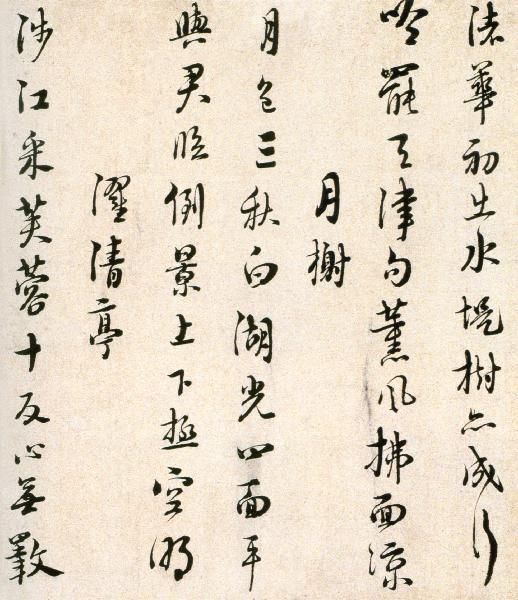 渚華初出水堤樹亦成行
吟罷天津句薰風拂面凉
月榭
月色三秋白湖光四面平
與君臨倒景上下極空明
濯清亭
涉江采芙蓉十反心無斁